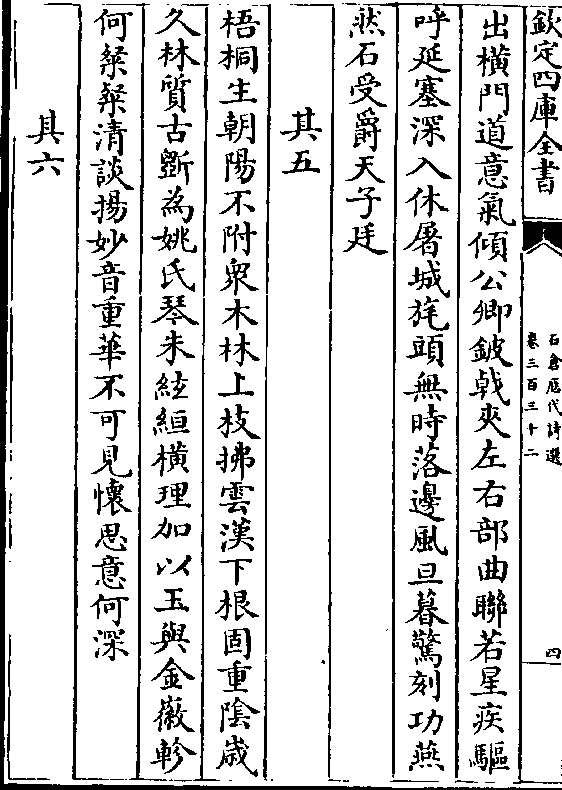 欽定四庫全書
石倉歴代詩選
卷三百三十二
四
出横門道意氣傾公卿鈹㦸夾左右部曲聯若星疾驅
呼延塞深入休屠城旄頭無時落邊風旦暮驚刻功燕
然石受爵天子廷
其五
梧桐生朝陽不附衆木林上枝拂雲漢下根固重陰歳
久林質古斵為姚氏琴朱絃絙横理加以玉與金徽軫
何粲粲清談揚妙音重華不可見懷思意何深
其六